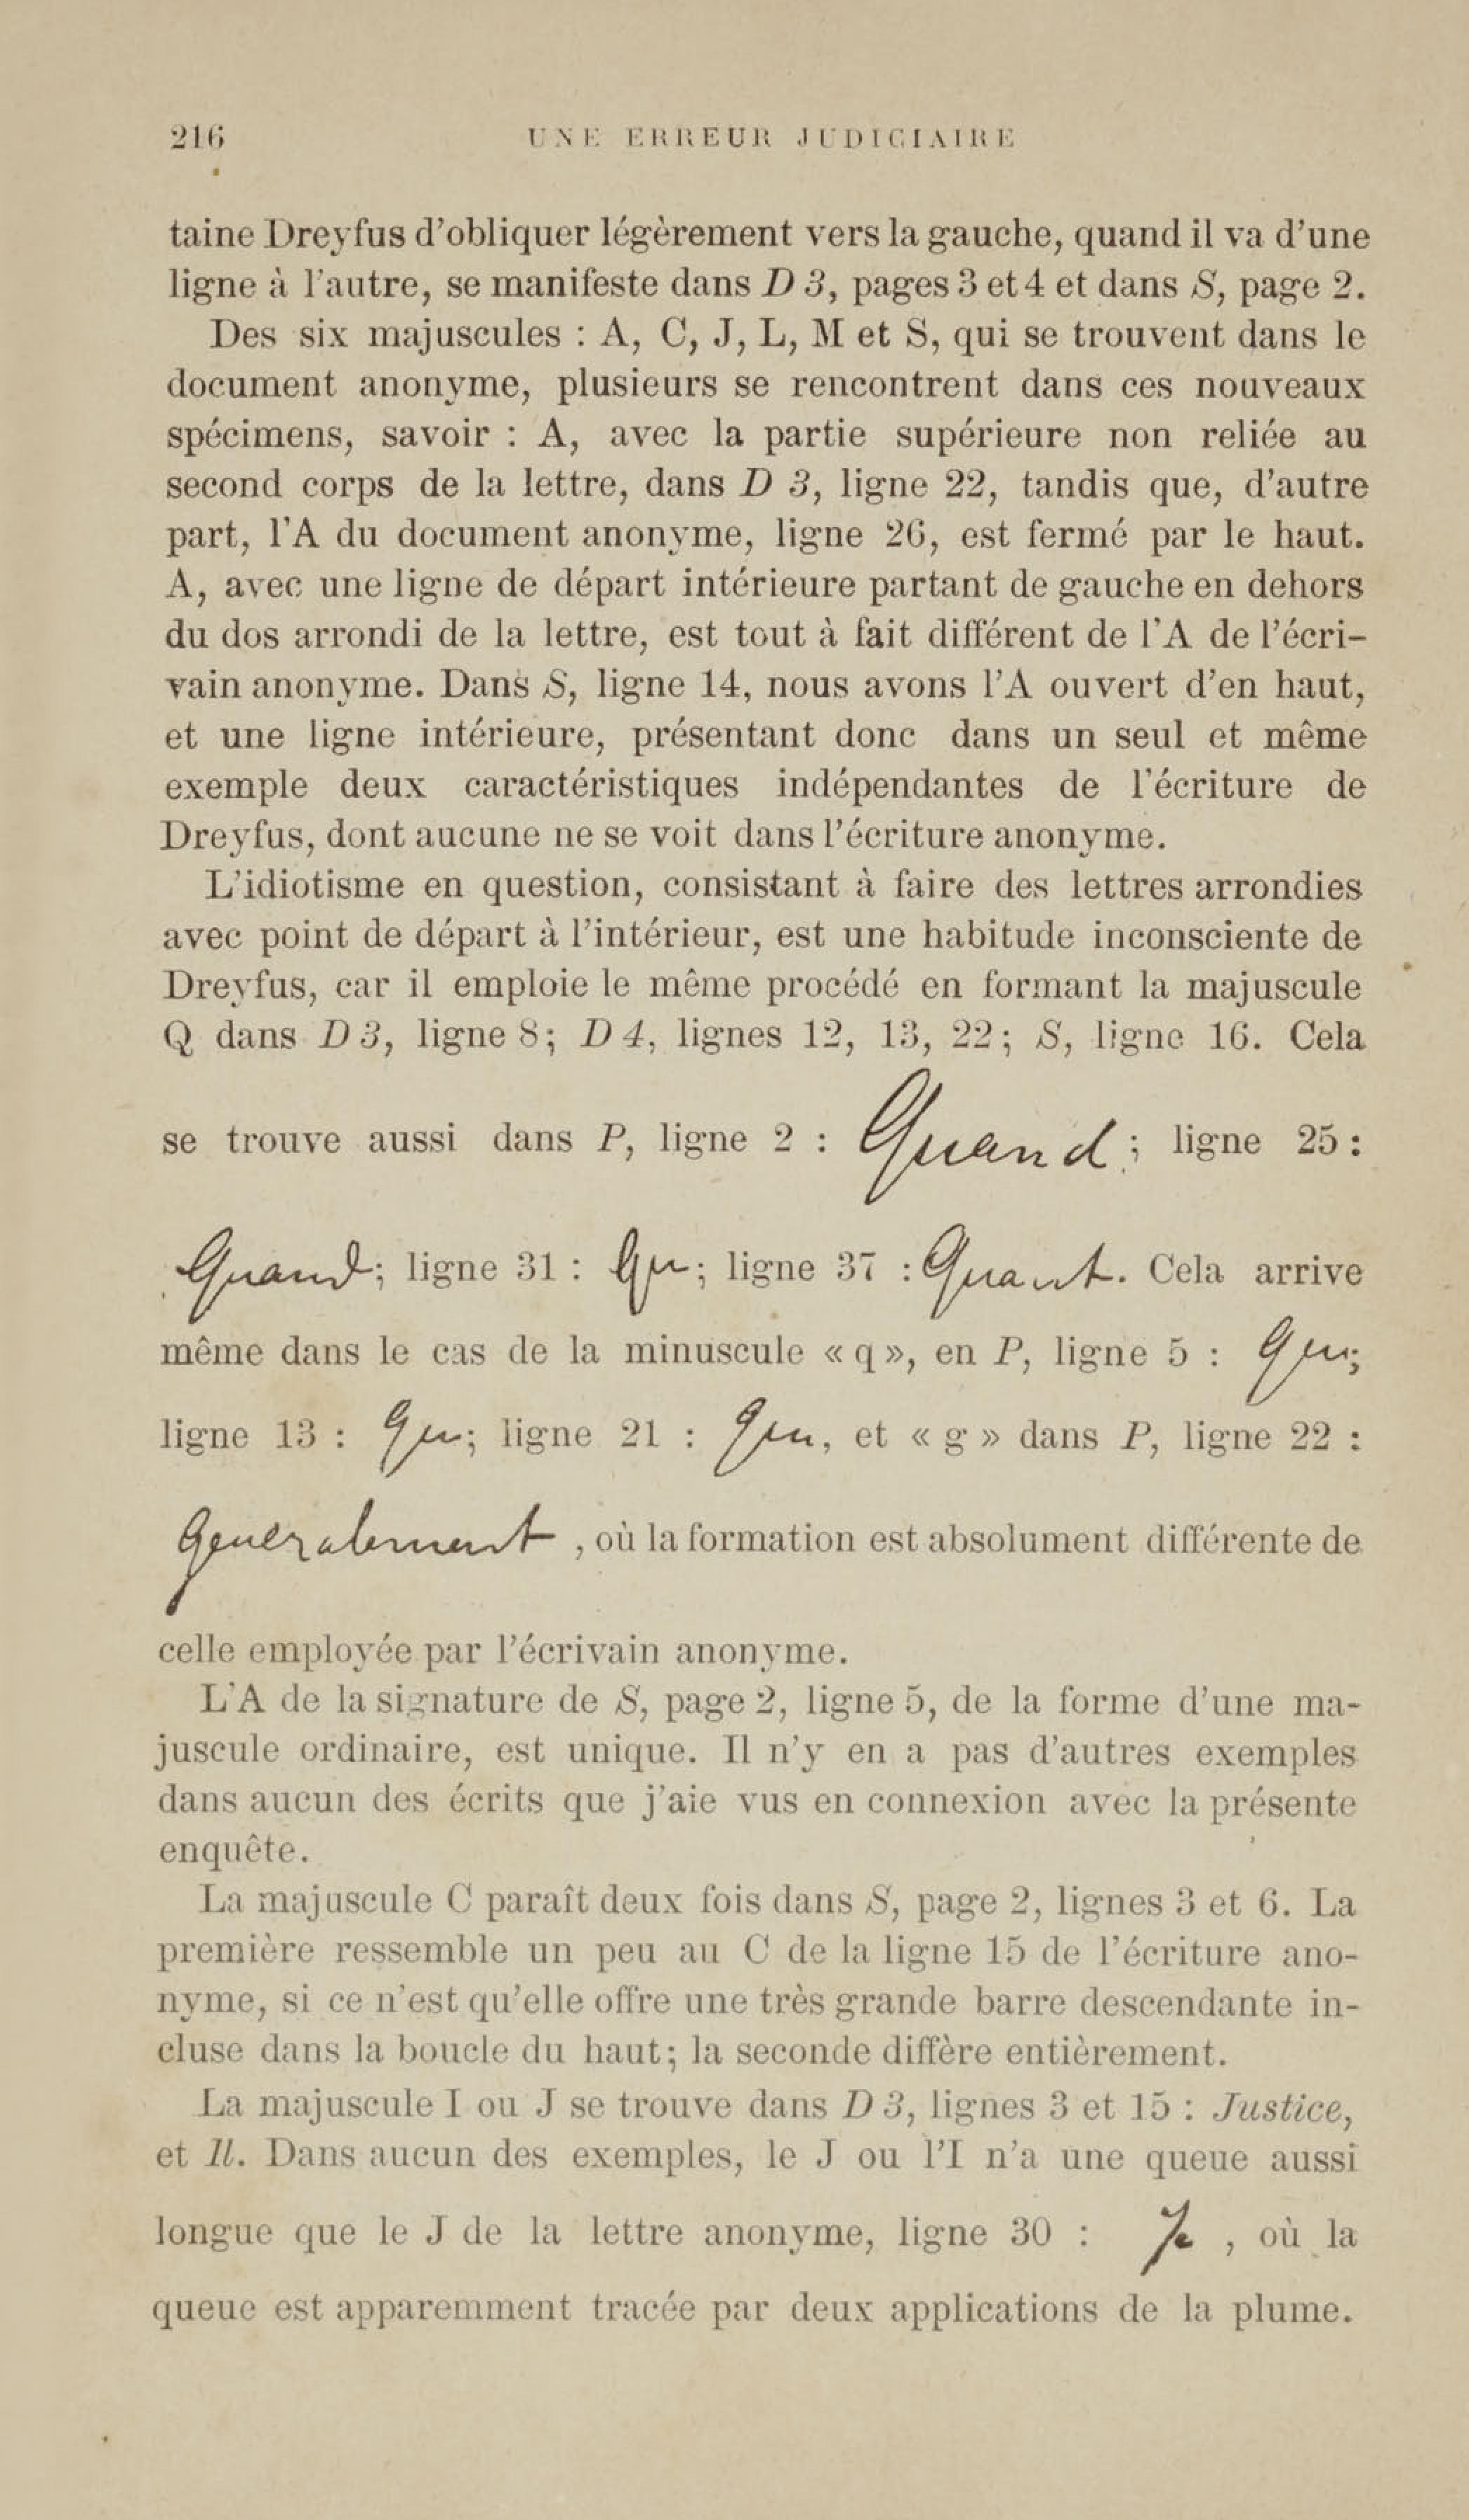 216 UNE ERREUR JUDICIAIRE
taine Dreyfus d'obliquer légèrement vers la gauche, quand il va d'une
ligne à l'autre, se manifeste dans D 3, pages 3 et 4 et dans S, page 2.
Des six majuscules : A, C, J, L, M et S, qui se trouvent dans le
document anonyme, plusieurs se rencontrent dans ces nouveaux
spécimens, savoir : A, avec la partie supérieure non reliée au
second corps de la lettre, dans D 3, ligne 22, tandis que, d'autre
part, l'A du document anonyme, ligne 26, est fermé par le haut.
A, avec une ligne de départ intérieure partant de gauche en dehors
du dos arrondi de la lettre, est tout à fait différent de l'A de l'écri-
vain anonyme. Dans S, ligne 14, nous avons l'A ouvert d'en haut,
et une ligne intérieure, présentant donc dans un seul et même
exemple deux caractéristiques indépendantes de l'écriture de
Dreyfus, dont aucune ne se voit dans l'écriture anonyme.
L'idiotisme en question, consistant à faire des lettres arrondies
avec point de départ à l'intérieur, est une habitude inconsciente de
Dreyfus, car il emploie le même procédé en formant la majuscule
Q dans D 3, ligne 8; D 4, lignes 12, 13, 22; S, ligne 16. Cela
se trouve aussi dans P, ligne 2 : Quand; ligne 25 :
Quand; ligne 31 : Qu; ligne 37 : Quant. Cela arrive
même dans le cas de la minuscule « q », en P, ligne 5 : qui;
ligne 13 : qu; ligne 21 : qu, et « g » dans P, ligne 22 :
generalement, où la formation est absolument différente de
celle employée par l'écrivain anonyme.
L'A de la signature de S, page 2, ligne 5, de la forme d'une ma-
juscule ordinaire, est unique. Il n'y en a pas d'autres exemples
dans aucun des écrits que j'aie vus en connexion avec la présente
enquête.
La majuscule C paraît deux fois dans S, page 2, lignes 3 et 6. La
première ressemble un peu au C de la ligne 15 de l'écriture ano-
nyme, si ce n'est qu'elle offre une très grande barre descendante in-
cluse dans la boucle du haut; la seconde diffère entièrement.
La majuscule I ou J se trouve dans D 3, lignes 3 et 15 : Justice,
et Il. Dans aucun des exemples, le J ou l'I n'a une queue aussi
longue que le J de la lettre anonyme, ligne 30 : Je, où la
queue est apparemment tracée par deux applications de la plume.